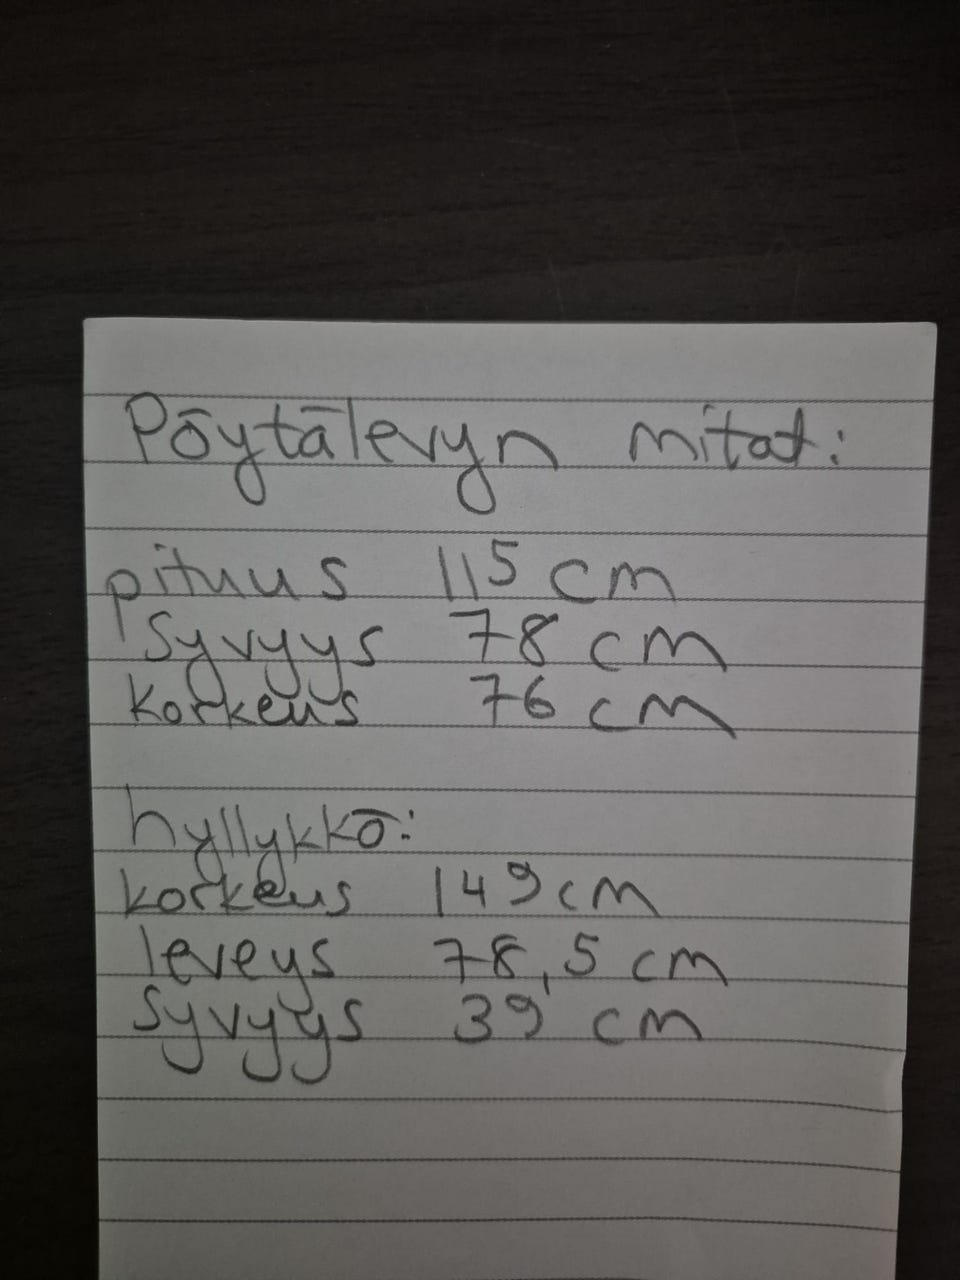 Pöytälevyn mitat:
pituus 115 cm
Syvyys 78 cm
korkeus 76 cm
hyllykkö:
korkeus 149 cm
leveys 78,5 cm
Syvyys 39 cm